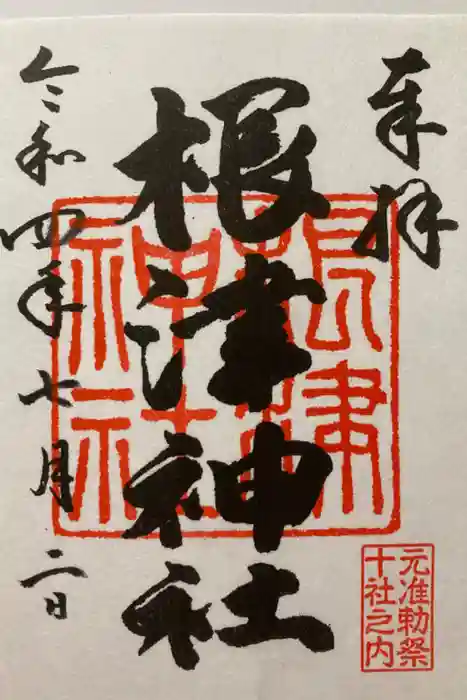 奉拝
根津神社
令和四年七月二日
根津神社
元准勅祭
十社之内